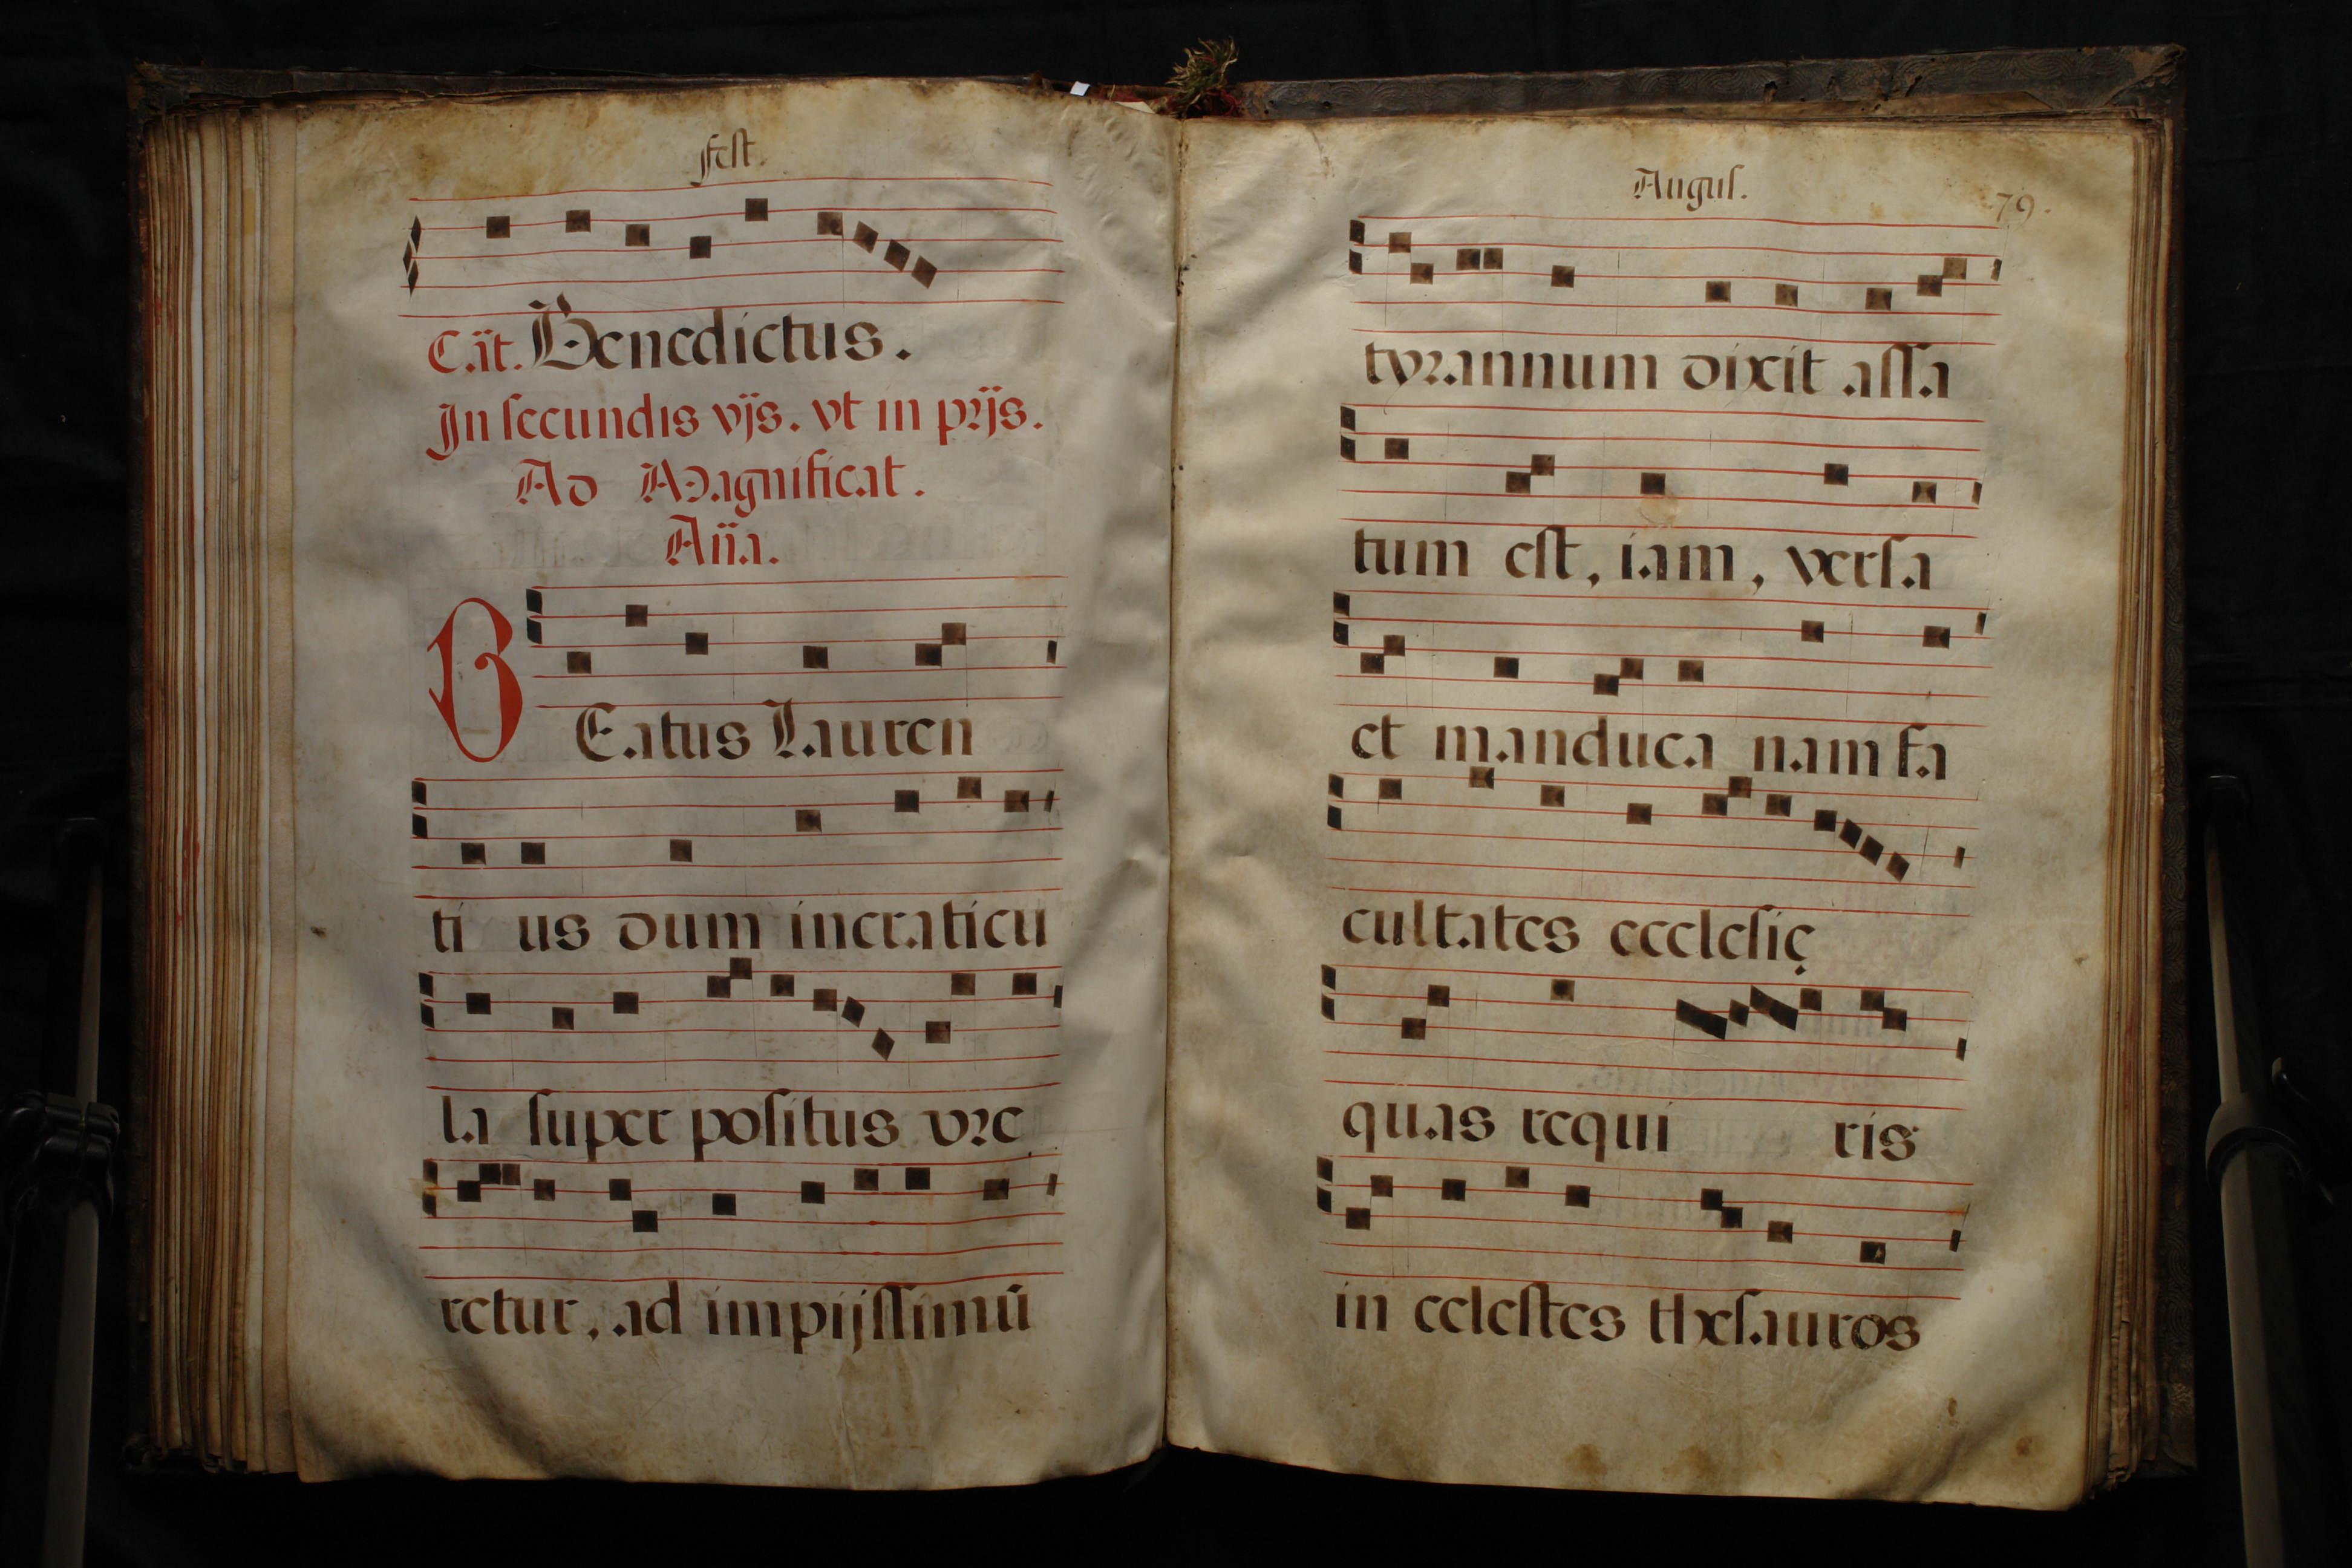 fest.
Cãt. Benedictus.
In secundis vijs. vt in prijs.
Ad Magnificat.
Aña.
BEatus Lauren
ti us dum incraticu
la super positus vre
retur, ad impijssimũ
Augus.
79.
tyrannum dixit assa
tum est, iam, versa
et manduca nam fa
cultates ecclesię
quas requi ris
in celestes thesauros